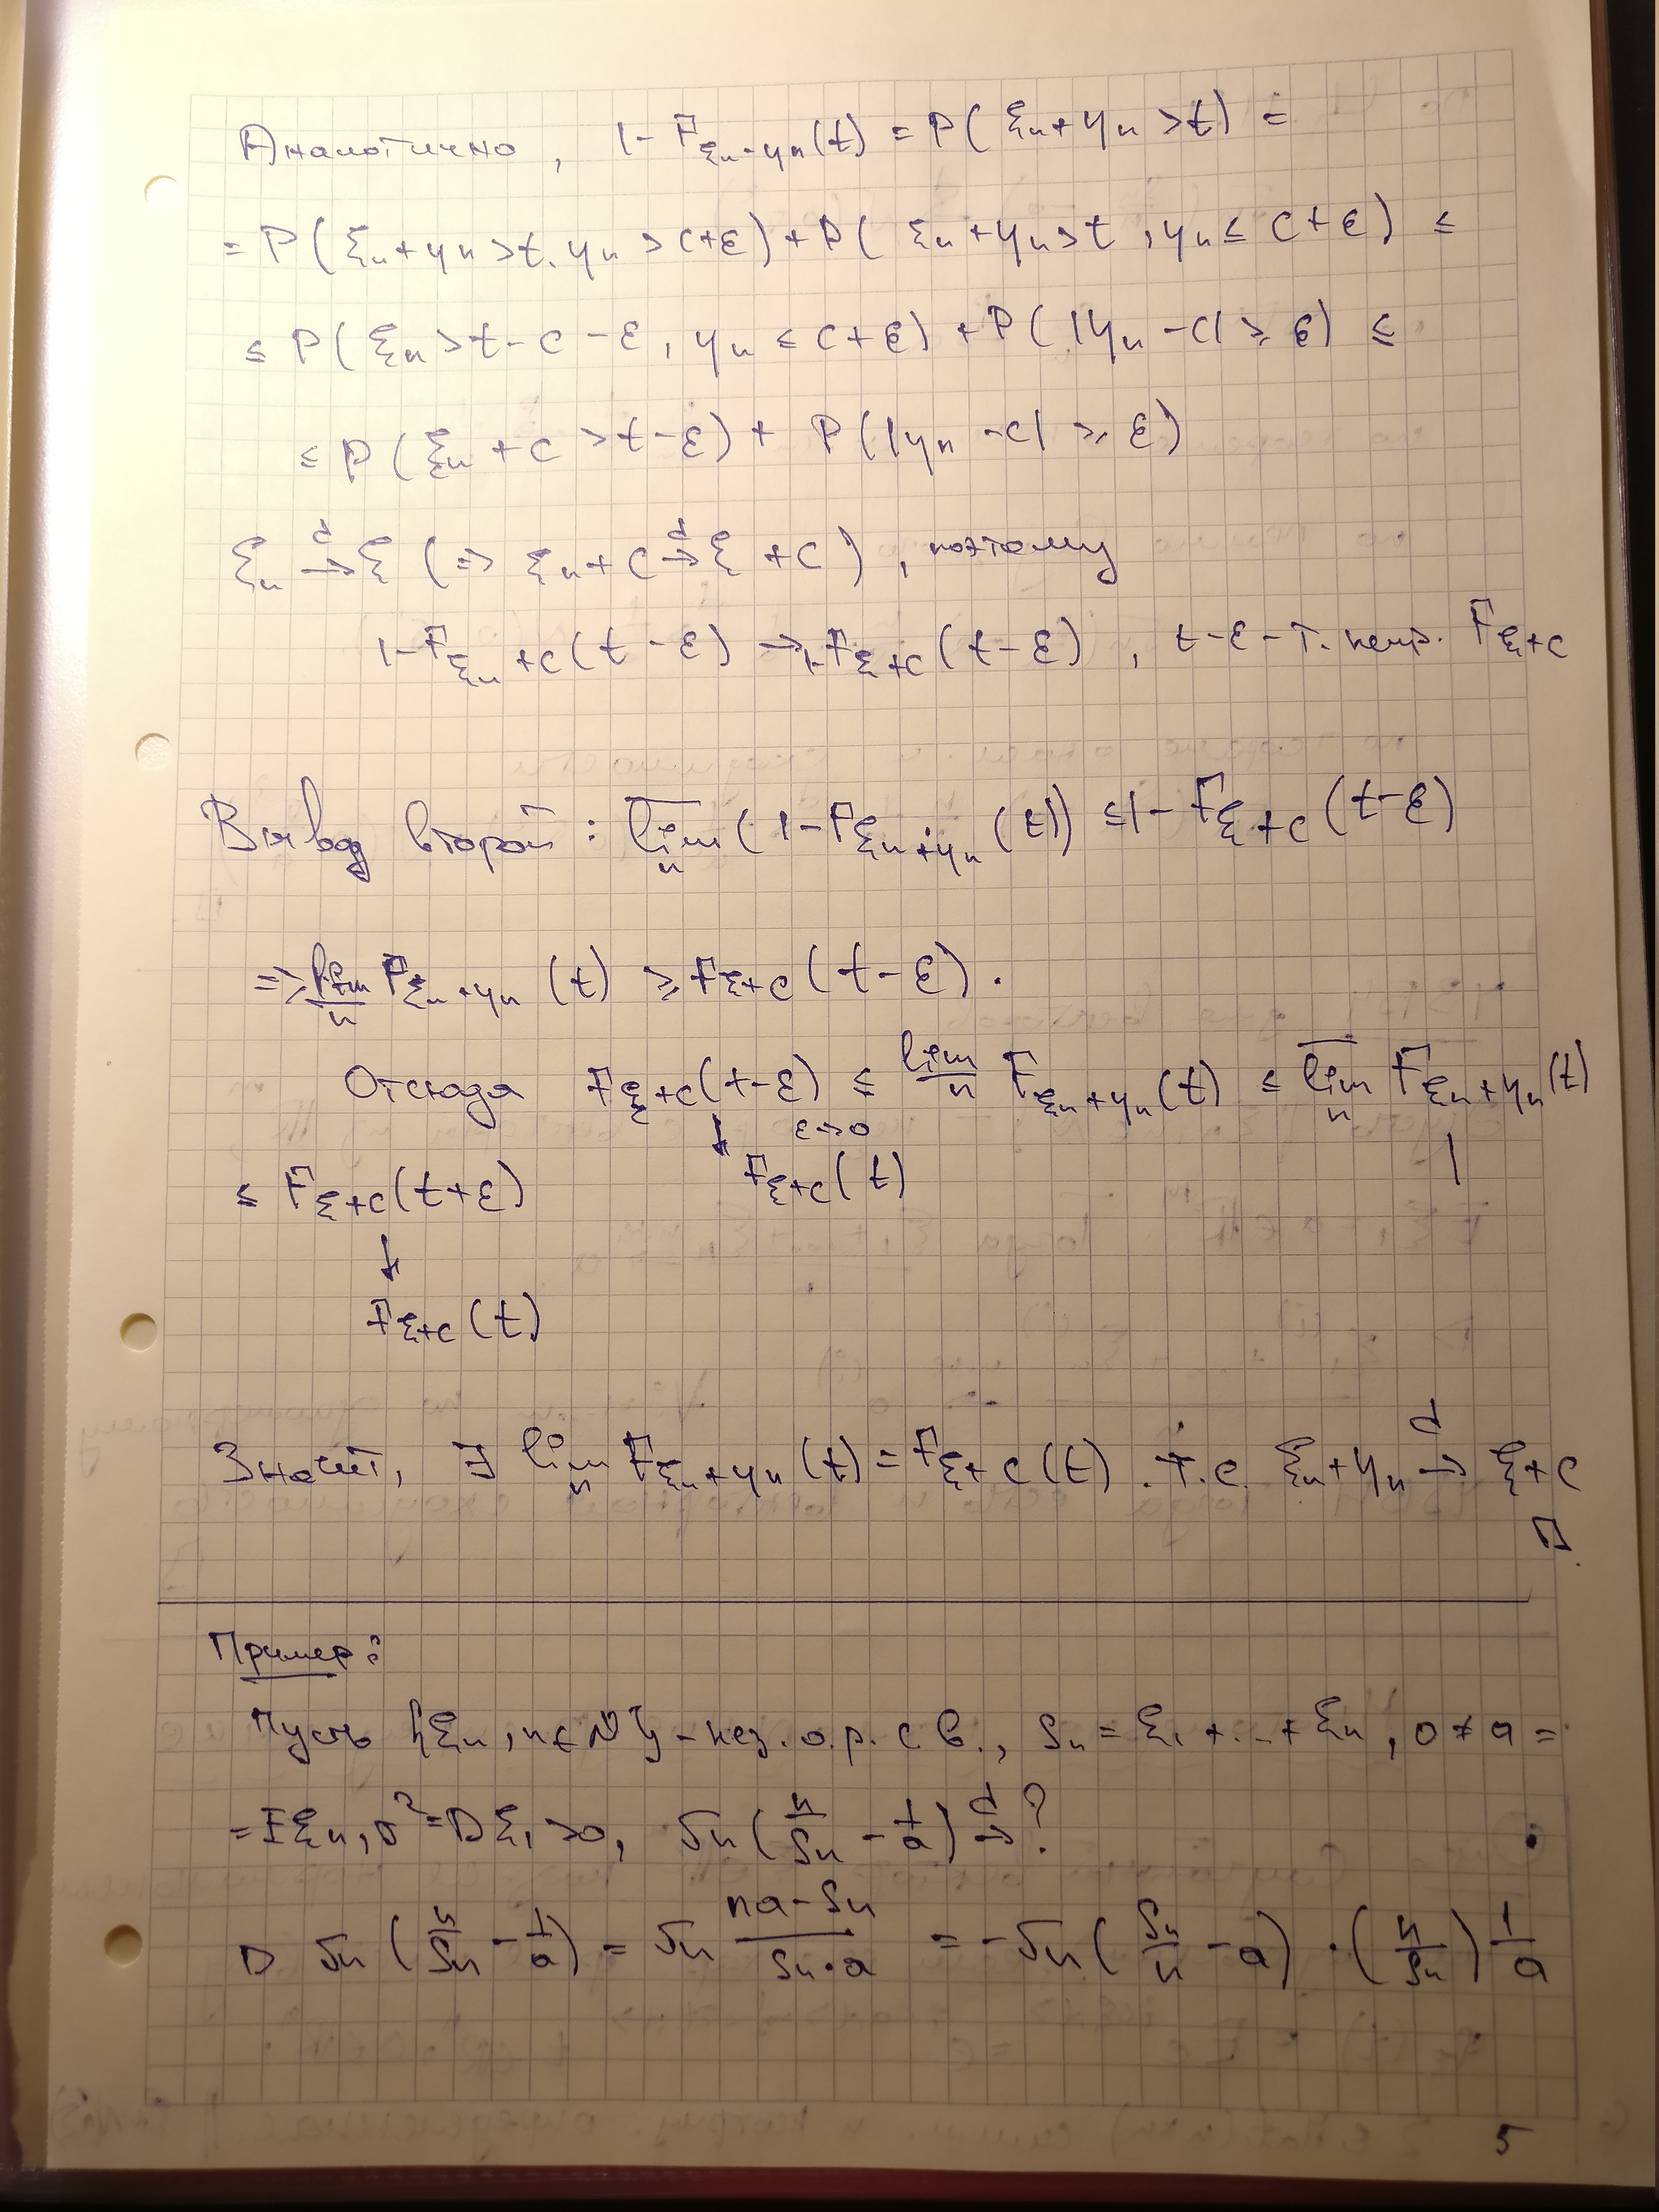 Аналогично, 1-F_{ξn+ηn}(t) = P(ξn+ηn >t) =
= P(ξn+ηn >t, ηn > c+ε) + P(ξn+ηn>t, ηn ≤ c+ε) ≤
≤ P(ξn >t-c-ε, ηn ≤ c+ε) + P(|ηn -c| ≥ ε) ≤
≤ P(ξn + c > t-ε) + P(|ηn -c| ≥ ε)
ξn →^d ξ (⇒ ξn+c →^d ξ+c), поэтому
1-F_{ξn+c}(t-ε) → 1-F_{ξ+c}(t-ε), t-ε - т. непр. F_{ξ+c}
Вывод второй: \overline{lim}_n (1-F_{ξn+ηn}(t)) ≤ 1-F_{ξ+c}(t-ε)
⇒ \underline{lim}_n F_{ξn+ηn}(t) ≥ F_{ξ+c}(t-ε).
Отсюда F_{ξ+c}(t-ε) ≤ \underline{lim}_n F_{ξn+ηn}(t) ≤ \overline{lim}_n F_{ξn+ηn}(t)
↓ ε→0
F_{ξ+c}(t)
≤ F_{ξ+c}(t+ε)
↓
F_{ξ+c}(t)
Значит, ∃ lim_n F_{ξn+ηn}(t) = F_{ξ+c}(t). т.е. ξn+ηn →^d ξ+c
□
Пример:
Пусть {ξn, n∈N} - нез. о.р. с.в., Sn = ξ1 +...+ ξn, 0 ≠ a =
= Eξn, σ²=Dξ1 >0, √n (n/Sn - 1/a) →^d ?
▷ √n (n/Sn - 1/a) = √n (na-Sn)/(Sn·a) = -√n (Sn/n - a) · (n/Sn) 1/a
5